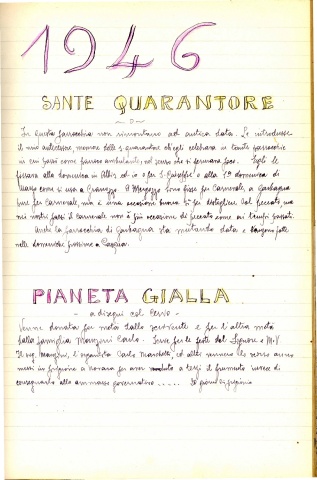 1946
SANTE QUARANTORE
In questa parrocchia non rimontano ad antica data. Le introdusse
il mio antecessore memore delle s. quarantore ch'egli celebrava in tante parrocchie
in cui passò come parroco ambulante, nel senso che si fermava poco. Egli le
fissava alla domenica in Albis ed io o per S. Giuseppe o alla 1ª domenica di
Marzo come si usa a Gravozzo. A Mergozzo sono fisse per Carnevale, a Garbagna
pure per Carnevale, ma è una occasione buona sì per distogliere dal peccato, ma
nei nostri paesi il carnevale non è più occasione di peccato come ai tempi passati.
Anche la parrocchia di Garbagna sta mutando data e vengono fatte
nelle domeniche prossime a Pasqua.
PIANETA GIALLA
- a disegni col cervo -
Venne donata per metà dallo scrivente e per l'altra metà
dalla famiglia Manzoni Carlo. Serve per le feste del Signore e M.V.
Il sig. Manzoni, l'organista Carlo Marchetti, ed altri vennero lo scorso anno
messi in prigione a Novara per aver venduto a terzi il frumento invece di
consegnarlo allo ammasso governativo ..... 20 giorni di prigionia